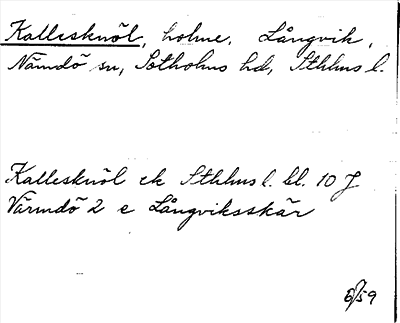 Kallesknöl, holme, Långvik,
Nämdö sn, Sotholms hd, Sthlms l.
Kallesknöl ek Sthlms l. bl. 10 J
Värmdö 2 e Långviksskär
6/59